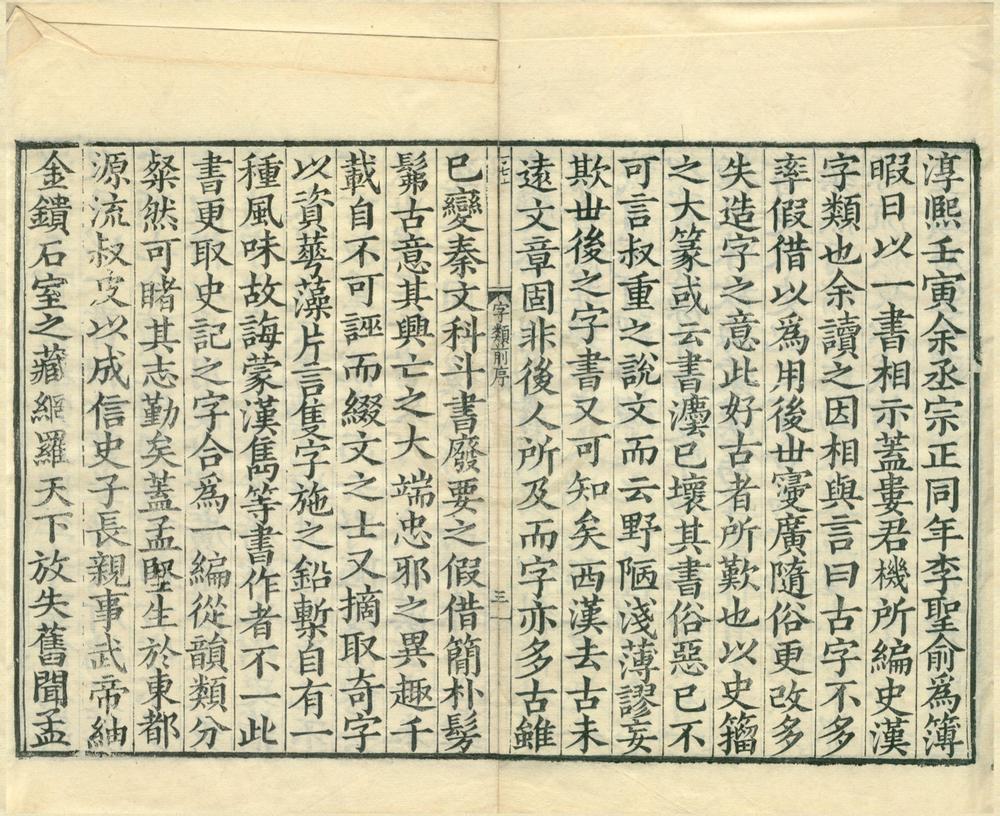 淳熙壬寅余丞宗正同年李聖俞爲簿
暇日以一書相示蓋婁君機所編史漢
字類也余讀之因相與言曰古字不多
率假借以爲用後丗寖廣隨俗更改多
失造字之意此好古者所歎也以史籀
之大篆或云書灋已壞其書俗惡已不
可言叔重之說文而云野陋淺薄謬妄
欺丗後之字書又可知矣西漢去古未
遠文章固非後人所及而字亦多古雖
已變秦文科斗書廢要之假借簡朴髣
髴古意其興亡之大端忠邪之異趣千
載自不可誣而綴文之士又摘取奇字
以資蕚藻片言隻字施之鉛槧自有一
種風味故誨蒙漢雋等書作者不一此
書更取史記之字合爲一編從韻類分
粲然可睹其志勤矣蓋孟堅生於東都
源流叔皮以成信史子長親事武帝紬
金鐀石室之藏網羅天下放失舊聞孟
字類前序
三